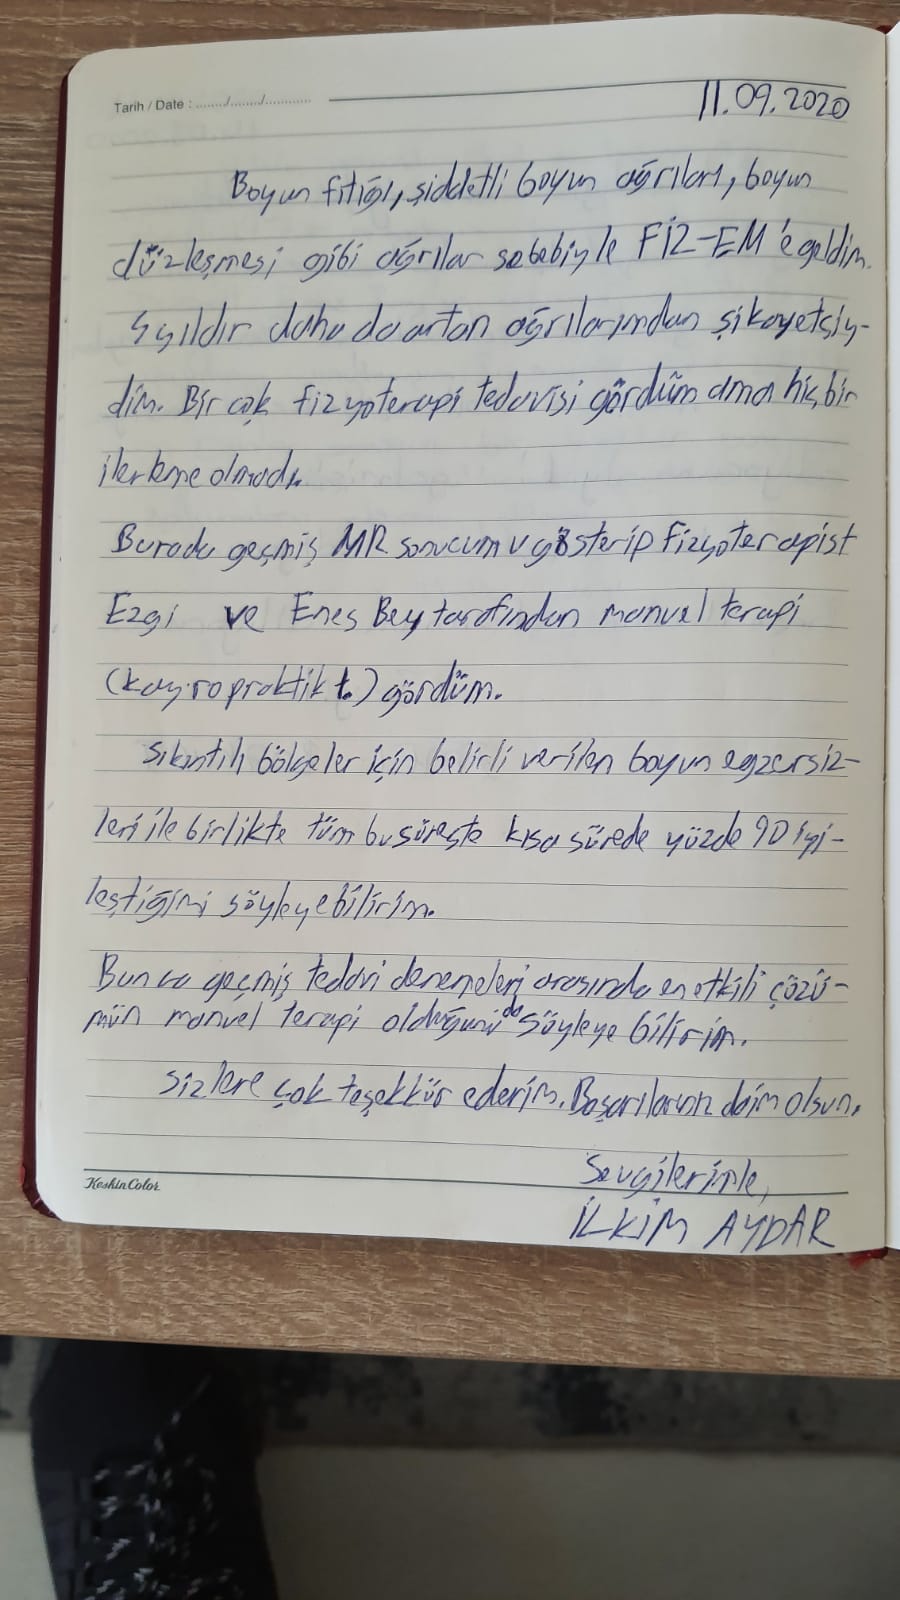 Tarih / Date : ......../......../............
11.09.2020
Boyun fıtığı, şiddetli boyun ağrıları, boyun
düzleşmesi gibi ağrılar sebebiyle FİZ-EM'e geldim.
5 yıldır daha da artan ağrılarımdan şikayetçiy-
dim. Bir çok fizyoterapi tedavisi gördüm ama hiç bir
ilerleme olmadı.
Burada geçmiş MR sonucumu gösterip Fizyoterapist
Ezgi ve Enes Bey tarafından manuel terapi
(kayropraktik t.) gördüm.
Sıkıntılı bölgeler için belirli verilen boyun egzersiz-
leri ile birlikte tüm bu süreçte kısa sürede yüzde 90 iyi-
leştiğimi söyleyebilirim.
Bunca geçmiş tedavi denemeleri arasında en etkili çözü-
mün manuel terapi olduğunu da söyleye bilirim.
Sizlere çok teşekkür ederim. Başarılarınız daim olsun.
Sevgilerimle,
İLKİM AYDAR
KeskinColor